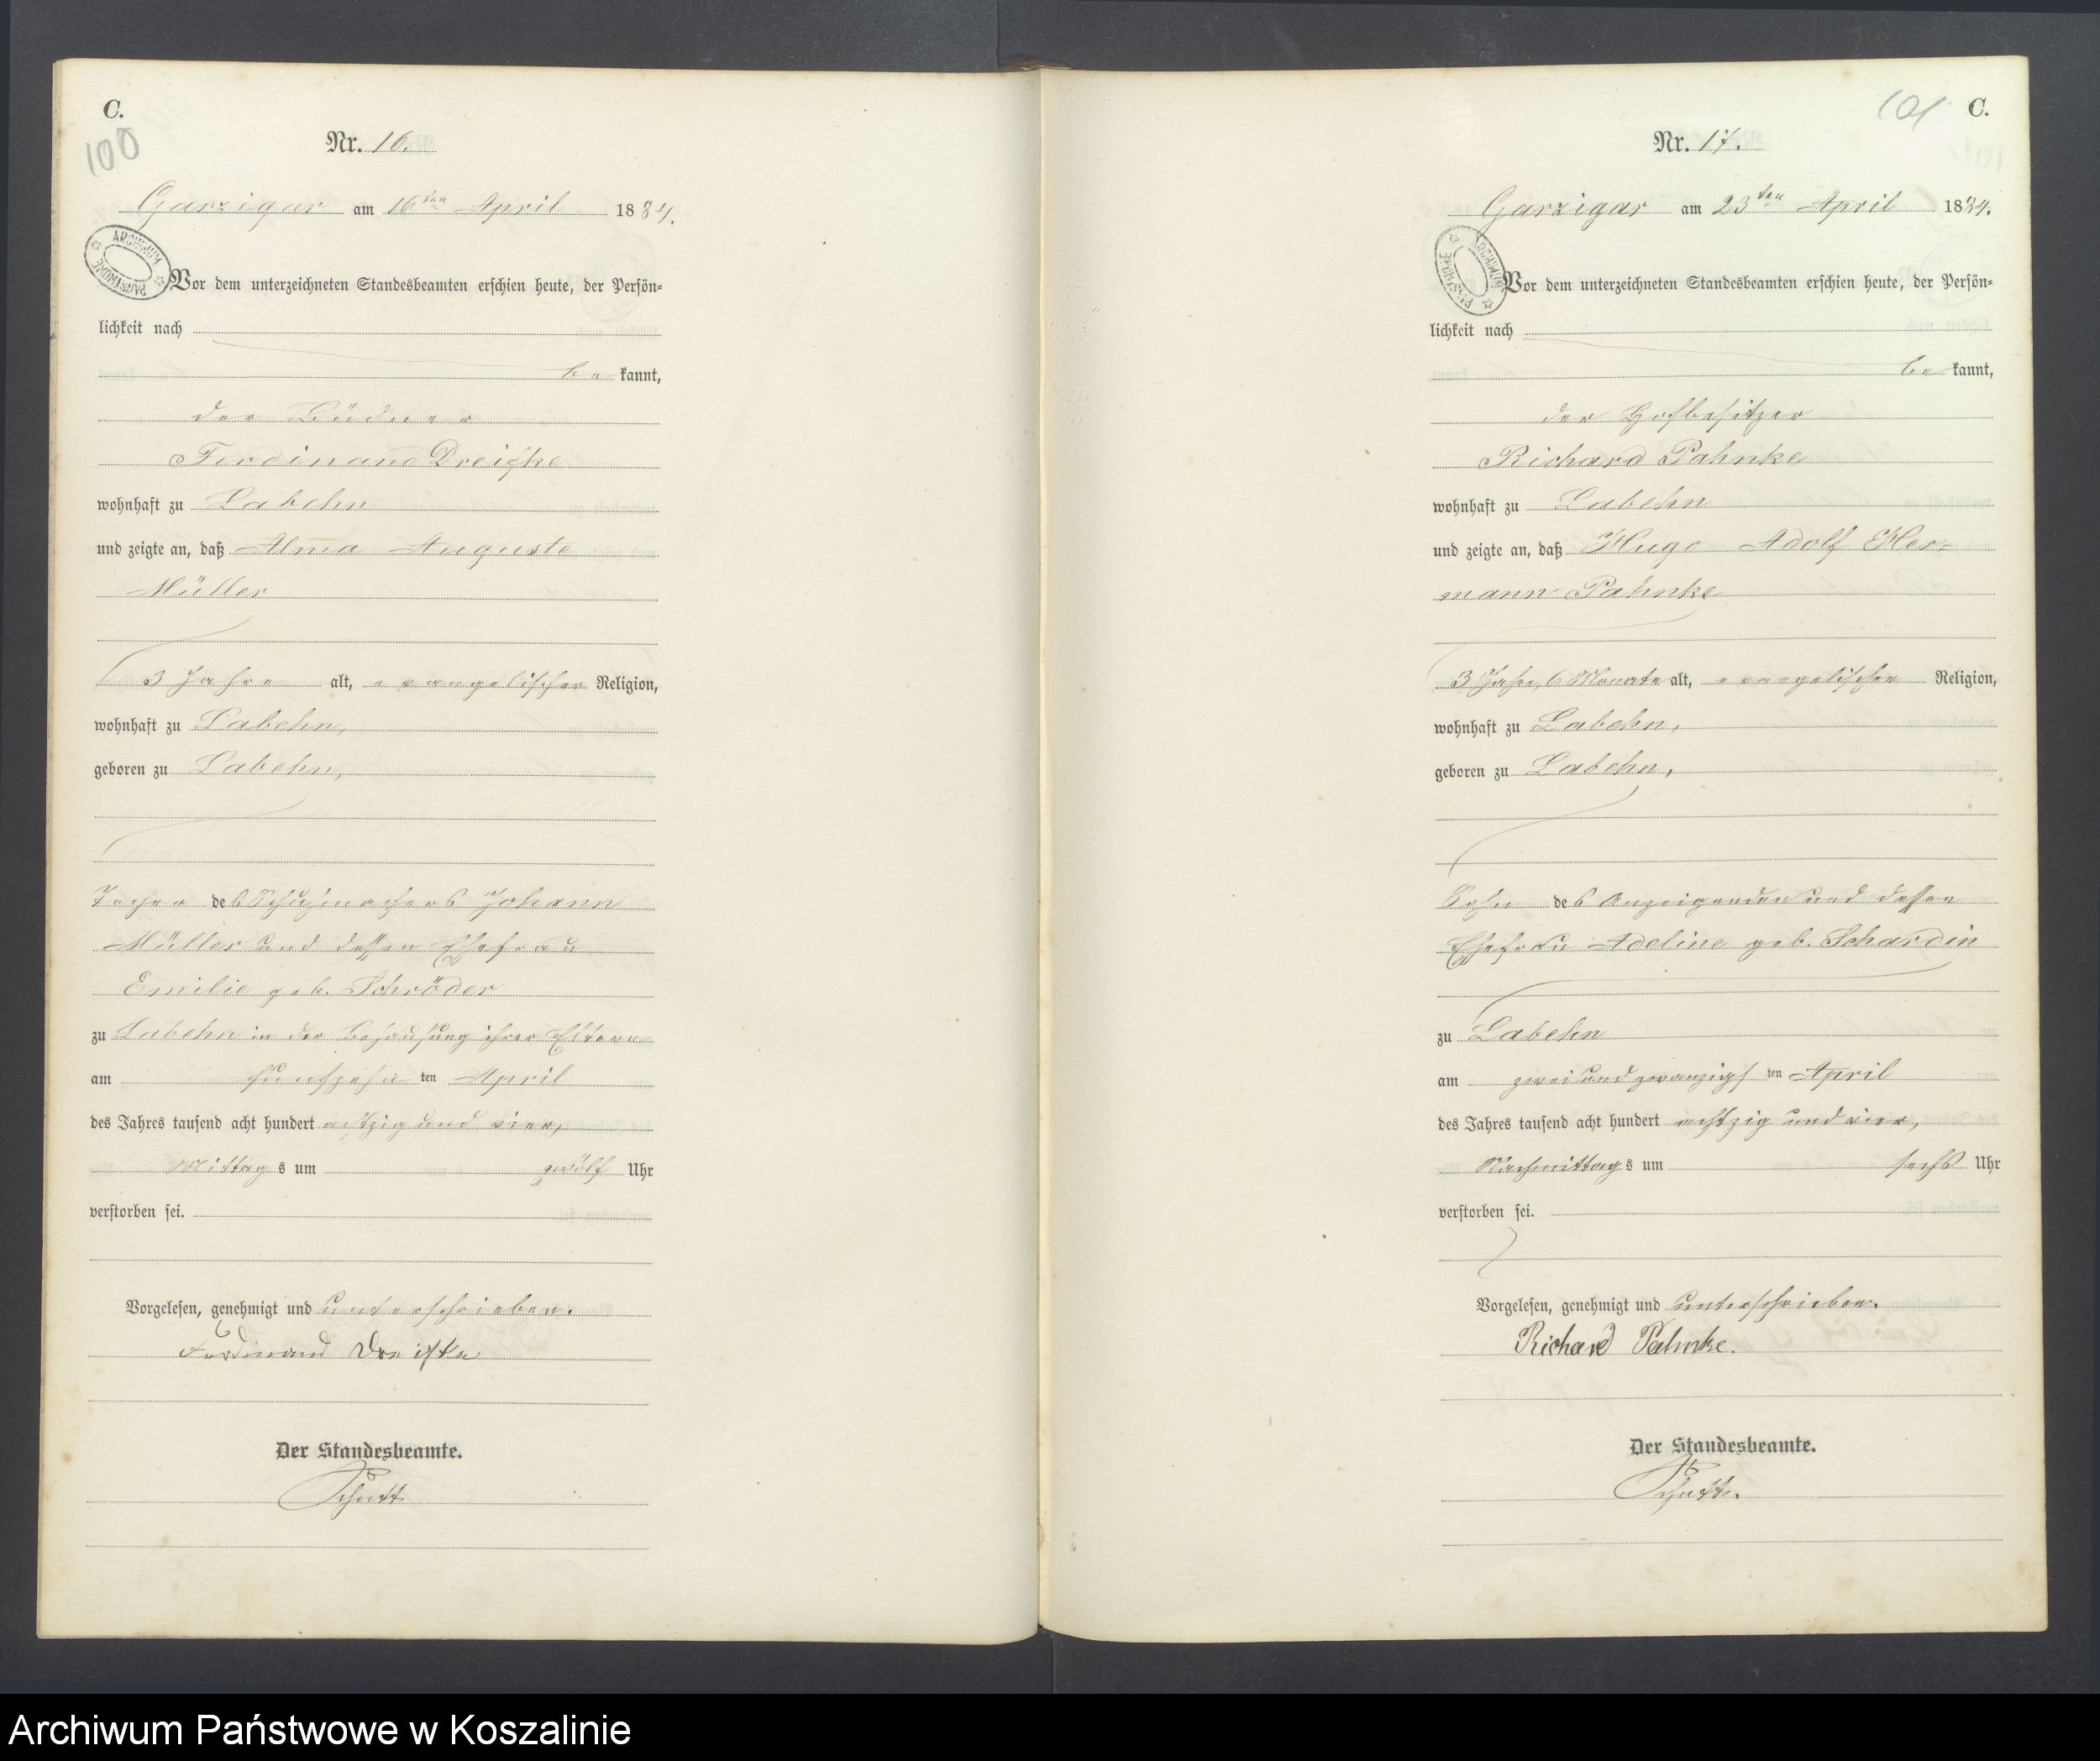 C.
100
Nr. 16.
Garzigar am 16ten April 1884.
ARCHIWUM PAŃSTWOWE
Vor dem unterzeichneten Standesbeamten erschien heute, der Persön=
lichkeit nach
be kannt,
der Büdner
Ferdinand Dreifke
wohnhaft zu Labehn
und zeigte an, daß Alma Auguste
Müller
3 Jahre alt, evangelischer Religion,
wohnhaft zu Labehn,
geboren zu Labehn,
Tochter des Schuhmachers Johann
Müller und dessen Ehefrau
Emilie geb. Schröder
zu Labehn in der Behausung ihrer Eltern
am funfzehn ten April
des Jahres tausend acht hundert achtzig und vier,
Mittag s um zwölf Uhr
verstorben sei.
Vorgelesen, genehmigt und unterschrieben.
Ferdinand Dreifke
Der Standesbeamte.
101 C.
Nr. 17.
Garzigar am 23ten April 1884.
ARCHIWUM PAŃSTWOWE
Vor dem unterzeichneten Standesbeamten erschien heute, der Persön=
lichkeit nach
be kannt,
der Hofbesitzer
Richard Pahnke
wohnhaft zu Labehn
und zeigte an, daß Hugo Adolf Her=
mann Pahnke
3 Jahre, 6 Monate alt, evangelischer Religion,
wohnhaft zu Labehn,
geboren zu Labehn,
Sohn des Anzeigenden und dessen
Ehefrau Adeline geb. Schardin
zu Labehn
am zwei und zwanzigs ten April
des Jahres tausend acht hundert achtzig und vier,
Nachmittag s um sechs Uhr
verstorben sei.
Vorgelesen, genehmigt und unterschrieben.
Richard Pahnke.
Der Standesbeamte.
Archiwum Państwowe w Koszalinie